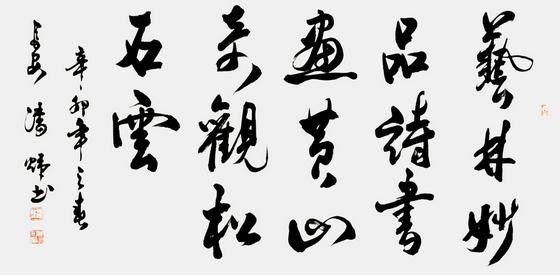 藝林妙
品詩書
畫黄山
奇觀松
石雲
辛卯年之春
長安潘書